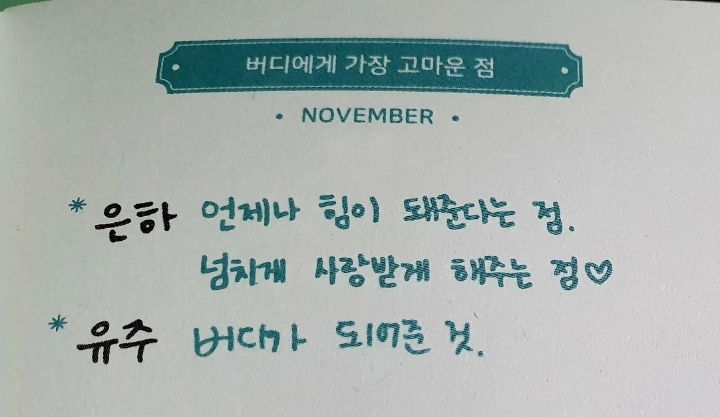 버디에게 가장 고마운 점
• NOVEMBER •
* 은하 언제나 힘이 돼준다는 점.
넘치게 사랑받게 해주는 점♡
* 유주 버디가 되어준 것.